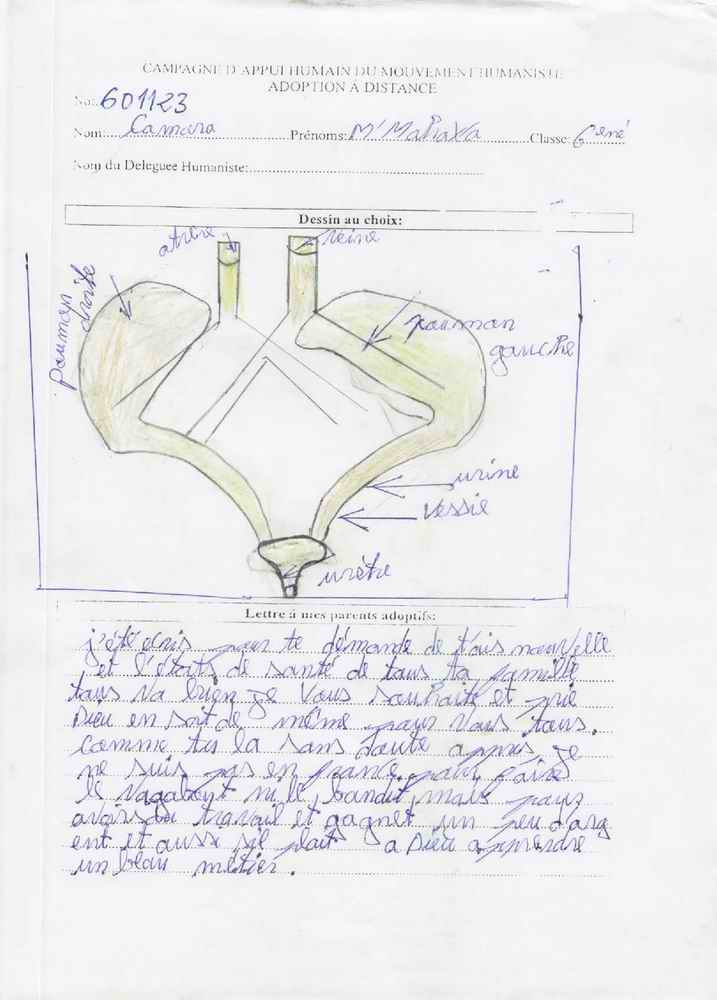 CAMPAGNE D'APPUI HUMAIN DU MOUVEMENT HUMANISTE
ADOPTION À DISTANCE
No: 601123
Nom: Camara Prénoms: M'Mahawa Classe: 6ené
Nom du Deleguee Humaniste:
Dessin au choix:
artère
veine
pouman droite
pouman gauche
urine
vessie
urètre
Lettre à mes parents adoptifs:
j'été ecris pour te démande de t'ais nouvelle
et l'états de santé de tous ta famille
tous va bien je vous souhaite et prie
Dieu en soit de même pour vous tous.
comme tu la sans doute appris je
ne suis pas en france pour faire
le vagabont ni le bandit, mais pour
avoir du travail et gagnet un peu d'arg
ent et aussi sil plait a Dieu apprendre
un beau métier.